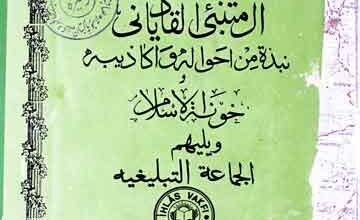 المتنبئ القادياني
نبذة من احواله واكاذيبه
و
خونة الاسلام
ويليهم
الجماعة التبليغيه
IHLÂS VAKFI